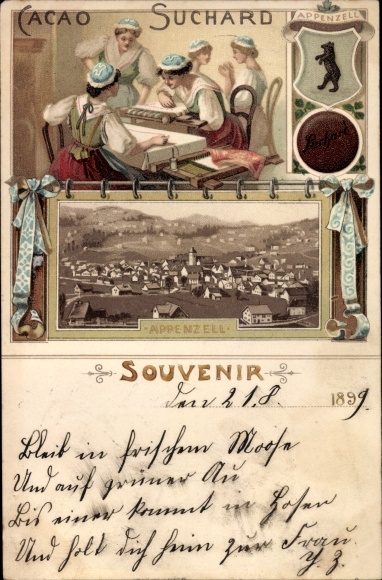 CACAO SUCHARD
APPENZELL
Suchard
APPENZELL
SOUVENIR
den 21.8. 1899.
Bleib in frischem Moose
Und auf grüner Au
Bis einer kommt in Hosen
Und holt dich heim zur Frau.